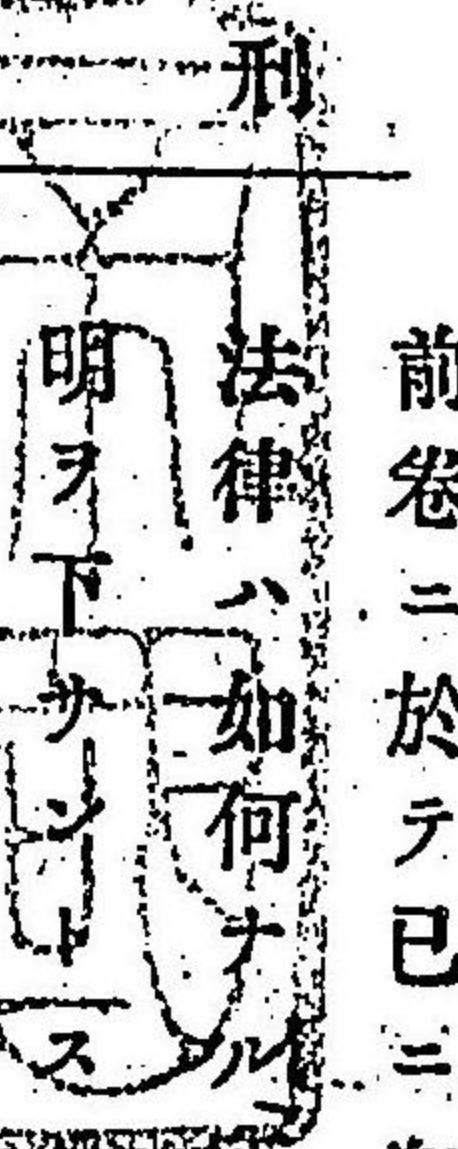 前卷ニ於テ已ニ
刑
法律ハ如何ナル
明ヲ下サントス